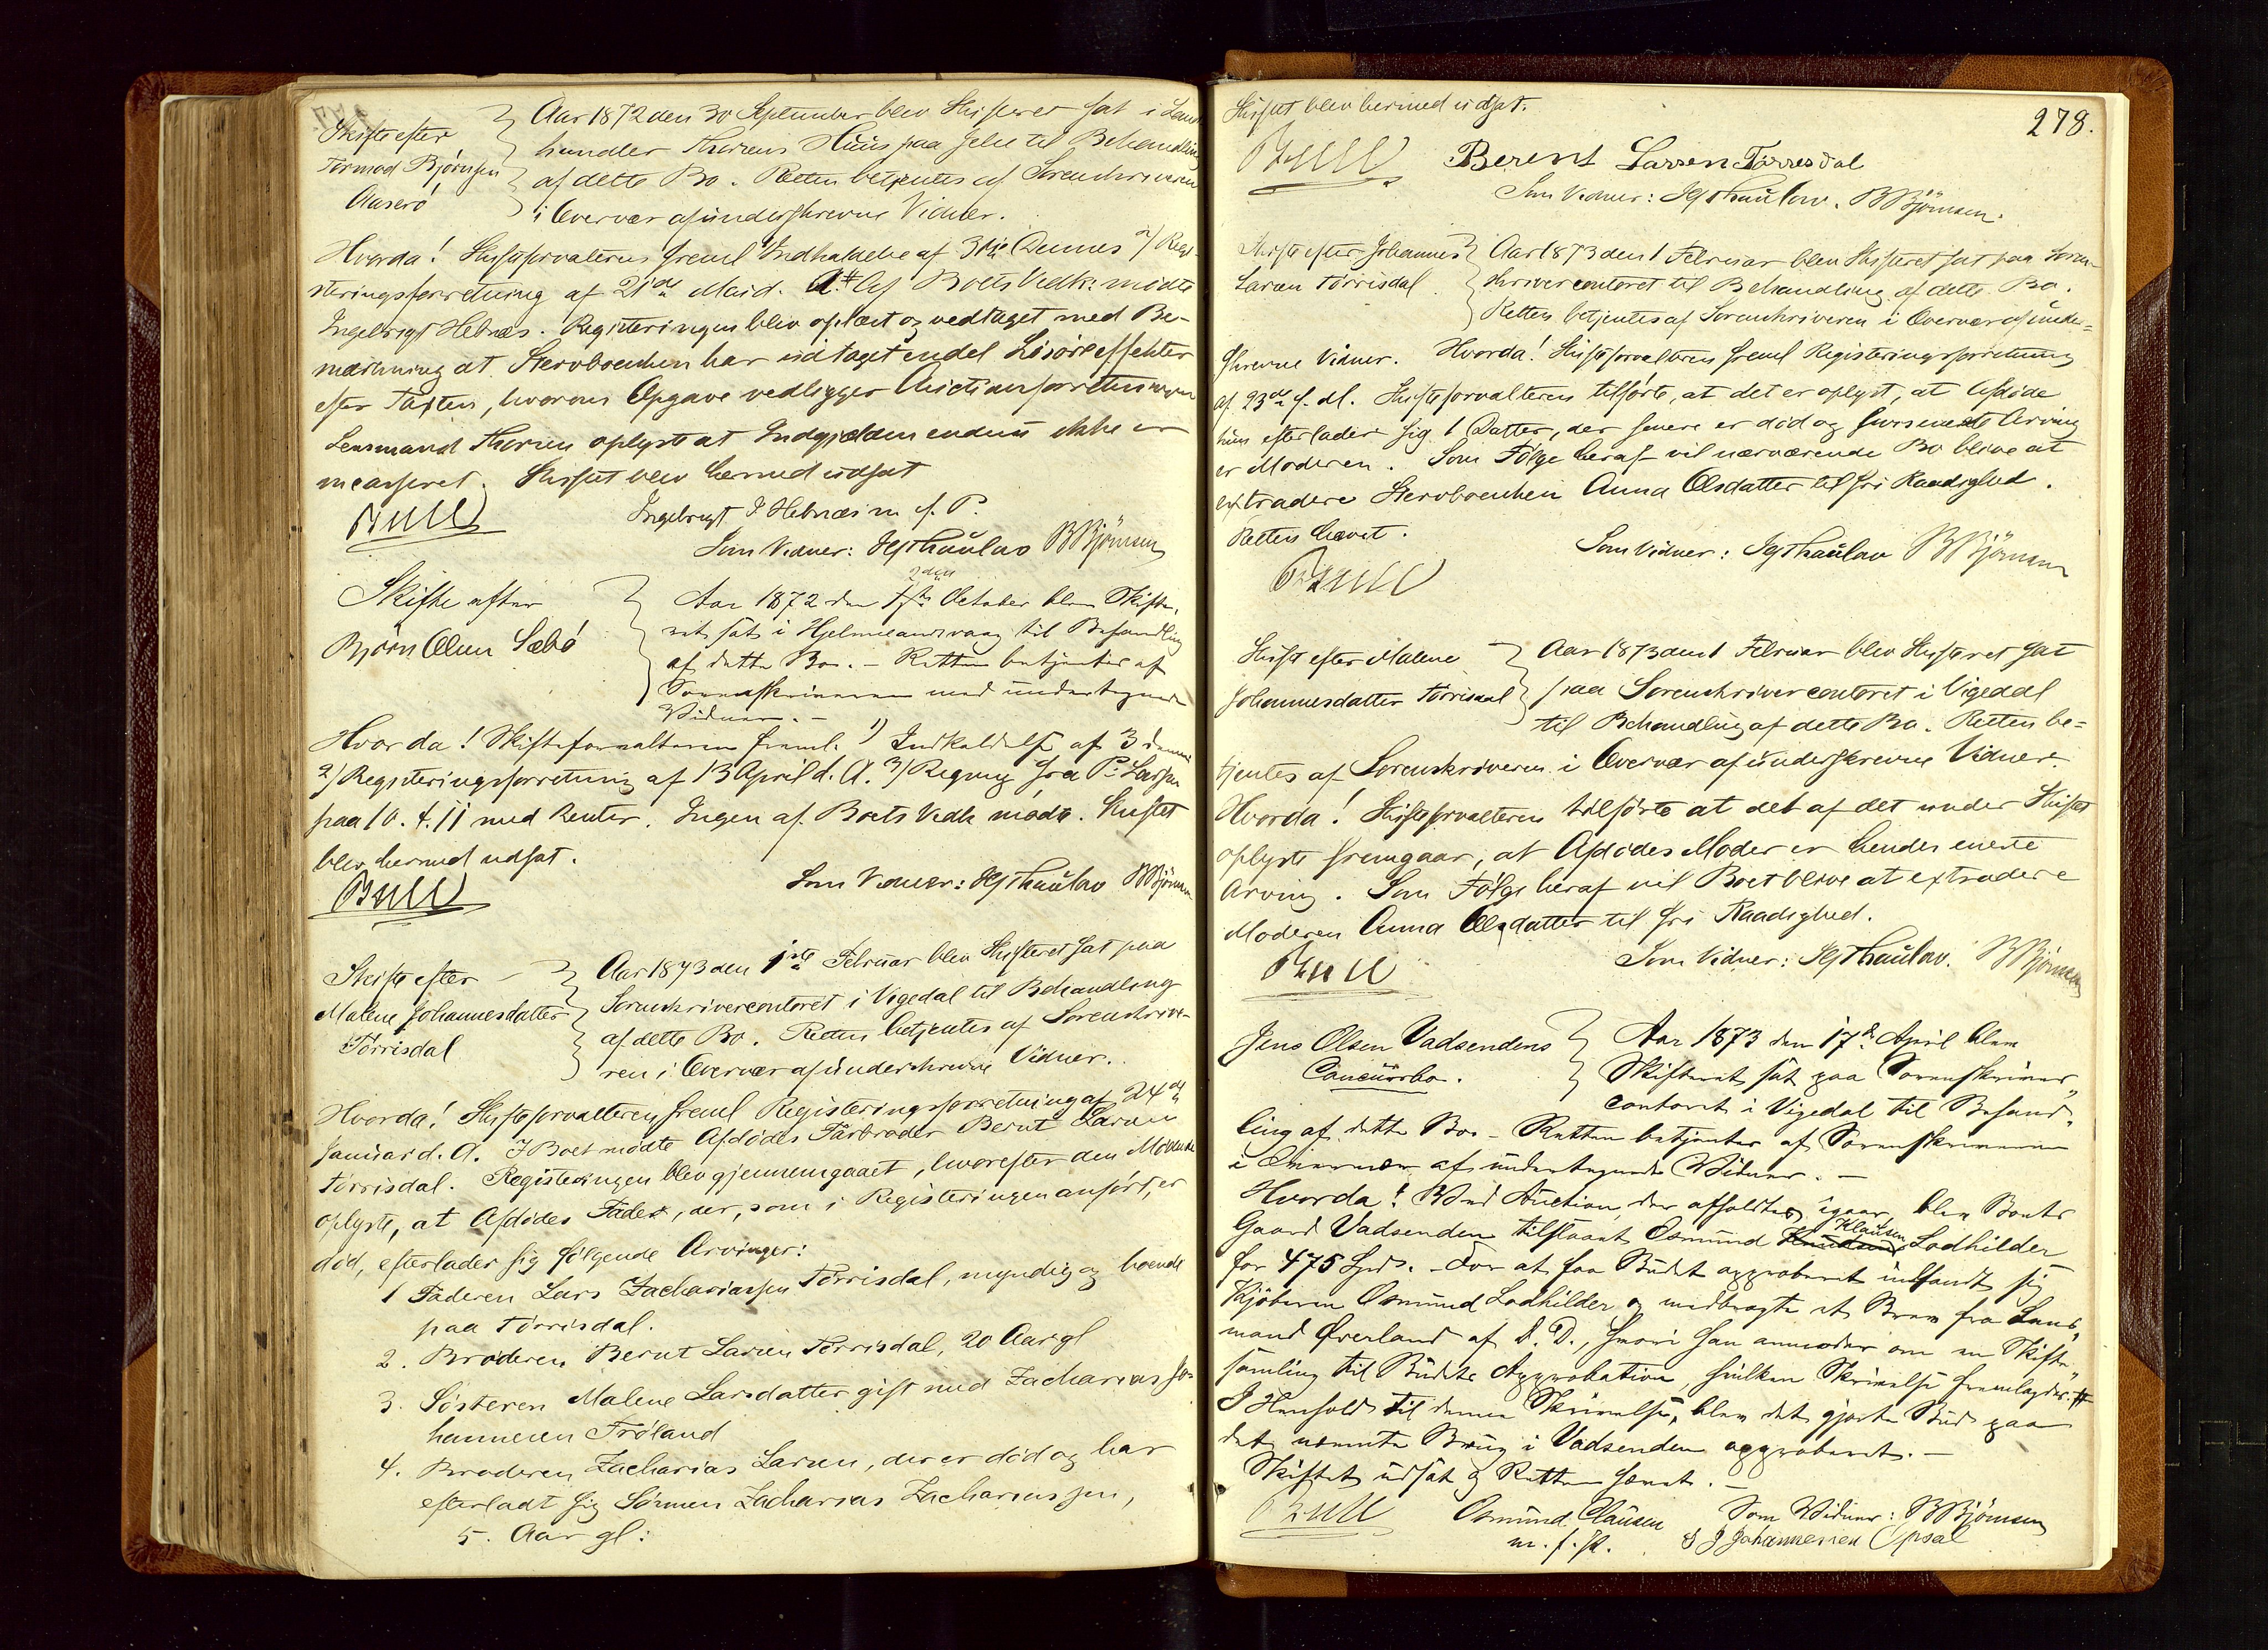 Skifte efter
Tormod Bjørnsen
Aaserø
Aar 1872 den 30 September blev Skifteret sat i Lands
handler Thorsens Huus paa Jelse til Behandling
af dette Bo. Retten betjentes af Sorenskriveren
i Overvær af underskrevne Vidner.
Hvorda! Skifteforvalteren freml 1) Indkaldelse af 3die Dennes 2) Regi-
steringsforretning af 21de Mai d. A. Af Boets Vedk: mødte
Ingebrigt Hebnæs. Registeringen blev oplæst og vedtaget med Be-
mærkning at Stervboenken har udtaget endel Løsøreeffekter
efter Taxten, hvorom Opgave vedligger Auctionsforretningen
Lensmand Thorsen oplyste at Indgjælden endnu ikke er
incasseret. Skiftet blev hermed udsat
Bull
Ingebrigt I Hebnæs m. f. P.
Som Vidner: HJThaulow BBjörnsen
Skifte efter
Bjørn Olsen Sæbø
2den
Aar 1872 den 1ste October blev Skifte-
ret sat i Hjelmelandsvaag til Behandling
af dette Bo. – Retten betjentes af
Sorenskriveren med undertegnede
Vidner. –
Hvorda! Skifteforvalteren freml. 1) Indkaldelse af 3 dennes
2) Registeringsforretning af 13 April d. A. 3) Regning fra P. Larsen
paa 10. 4. 11 med Renter. Ingen af Boets Vedk mødte. Skiftet
blev hermed udsat.
Bull
Som Vidner: HJThaulow BBjörnsen
Skifte efter
Malene Johannesdatter
Tørrisdal
Aar 1873 den 1ste Februar blev Skifteret sat paa
Sorenskrivercontoret i Vigedal til Behandling
af dette Bo. Retten betjentes af Sorenskrive-
ren i Overvær af underskrevne Vidner.
Hvorda! Skifteforvalteren freml Registeringsforretning af 24de
Januar d. A. I Boet mødte Afdødes Farbroder Bernt Larsen
Tørrisdal. Registeringen blev gjennemgaaet, hvorefter den Mødende
oplyste, at Afdødes Fader, der, som i Registeringen anført, er
død, efterlader sig følgende Arvinger:
1 Faderen Lars Zachariassen Tørrisdal, myndig og boende
paa Tørrisdal.
2. Broderen Bernt Larsen Tørrisdal, 20 Aar gl
3. Søsteren Malene Larsdatter gift med Zacharias Jo-
hannesen Frøland
4. Broderen Zacharias Larsen, der er død og har
efterladt sig Sønnen Zacharias Zachariassen,
5. Aar gl:
278.
Skiftet blev hermed udsat.
Bull Berent Larsen Tørresdal
Som Vidner: HJThaulow. BBjörnsen.
Skifte efter Johannes
Larsen Tørrisdal
Aar 1873 den 1 Februar blev Skifteret sat paa Soren-
skrivercontoret til Behandling af dette Bo.
Retten betjentes af Sorenskriveren i Overvær af under-
skrevne Vidner. Hvorda! Skifteforvalteren freml Registeringsforretning
af 23de f. M. Skifteforvalteren tilførte, at det er oplyst, at Afdøde
kun efterlader sig 1 Datter, der senere er død og hvis eneste Arving
er Moderen. Som Følge heraf vil nærværende Bo blive at
extradere Stervboenken Anna Olsdatter til fri Raadighed.
Retten hævet.
Bull
Som Vidner: HJThaulow BBjörnsen
Skifte efter Malene
Johannesdatter Tørrisdal
Aar 1873 den 1 Februar blev Skifteret sat
paa Sorenskrivercontoret i Vigedal
til Behandling af dette Bo. Retten be-
tjentes af Sorenskriveren i Overvær af underskrevne Vidner.
Hvorda! Skifteforvalteren tilførte at det af det under Skiftet
oplyste fremgaar, at Afdødes Moder er hendes eneste
Arving. Som Følge heraf vil Boet blive at extradere
Moderen Anna Olsdatter til fri Raadighed.
Bull
Som Vidner: HJThaulow. BBjörnsen
Jens Olsen Vadsendens
Concursbo.
Aar 1873 den 17de April blev
Skifteret sat paa Sorenskriver-
contoret i Vigedal til Behand-
ling af dette Bo – Retten betjentes af Sorenskriveren
i Overvær af undertegnede Vidner. –
Hvorda! Ved Auction, der afholdtes igaar, blev Boets
Gaard Vadsenden tilslaaet Osmund Knudsen Klausen Lodhilder
for 475 Spd. – For at faa Budet approberet indfandt sig
Kjøberen Osmund Lodhilder og medbragte et Brev fra Lens-
mand Øverland af D. D., hvori han anmoder om en Skifte-
samling til Budets Approbation, hvilken Skrivelse fremlagdes.
I Henhold til denne Skrivelse, blev det gjorte Bud paa
det nævnte Brug i Vadsenden approberet. –
Skiftet udsat og Retten hævet. –
Bull
Osmund Clausen
m. f. P.
Som Vidner: BBjörnsen
J Johannesen Opsal